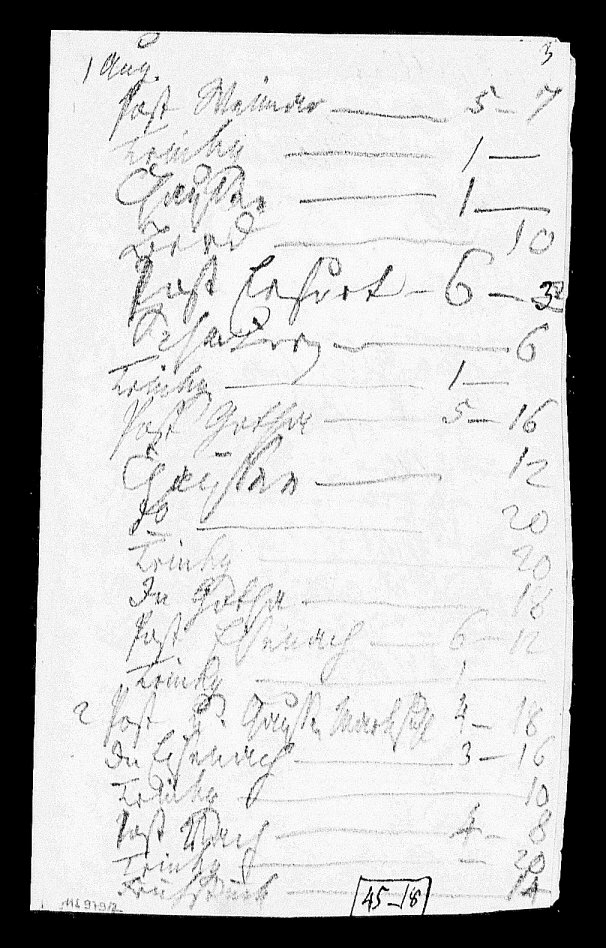 3
1 Aug.
Post Weimar — 5 – 7
Trinkg — 1 —
Chaussee — 1 —
10
Post Erfurt – 6 – 32
6
Trinkg — 1 —
Post Gotha — 5 – 16
Chaussee — 12
do — 20
Trinkg — 20
In Gotha — 18
Post Eisenach — 6 – 12
Trinkg — 1 —
2 Post u. Chaussee Marksuhl 4 – 18
In Eisenach — 3 – 16
Trinkg — 10
Post Vach — 4 – 8
Trinkg — 20
Frühstück — 14
45 – 18